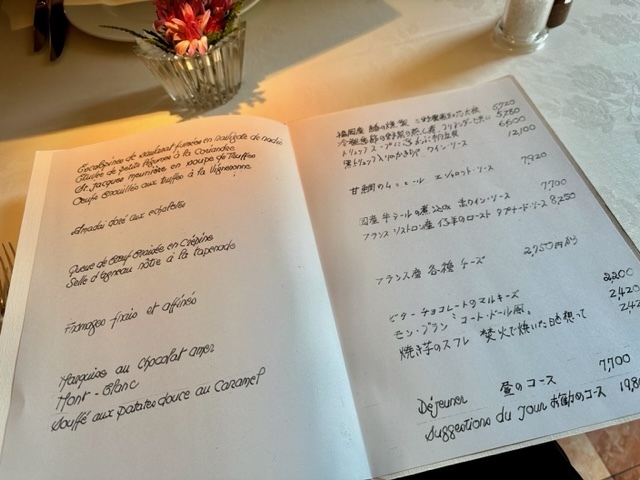 Escalopines de saulard fumées en salade de radis
Étuvée de petits légumes à la Coriandre
St. Jacques meunière en soupe de Truffes
Oeufs brouillés aux truffes à la Vigneronne
Amadai doré aux échalotes
Queue de Boeuf Braisée en Crépine
Selle d'agneau rôtie à la tapenade
Fromages frais et affinés
Marquise au Chocolat amer
Mont-Blanc
Soufflé aux patates douce au Caramel
5,720
5,280
トリュフスープ 6,600
黒トリュフ ワインソース 12,100
甘鯛のムニエル エシャロットソース 7,920
国産牛テールの煮込み 赤ワインソース 7,700
フランス シストロン産 仔羊のロースト タプナードソース 8,250
フランス産 各種チーズ 2,750
ビターチョコレートのマルキーズ 2,200
モン・ブラン コートドール風 2,420
焼き芋のスフレ 焚火で焼いた日を想って 2,42
Déjeuner 昼のコース 7,700
Suggestions du Jour お勧めのコース 19,8